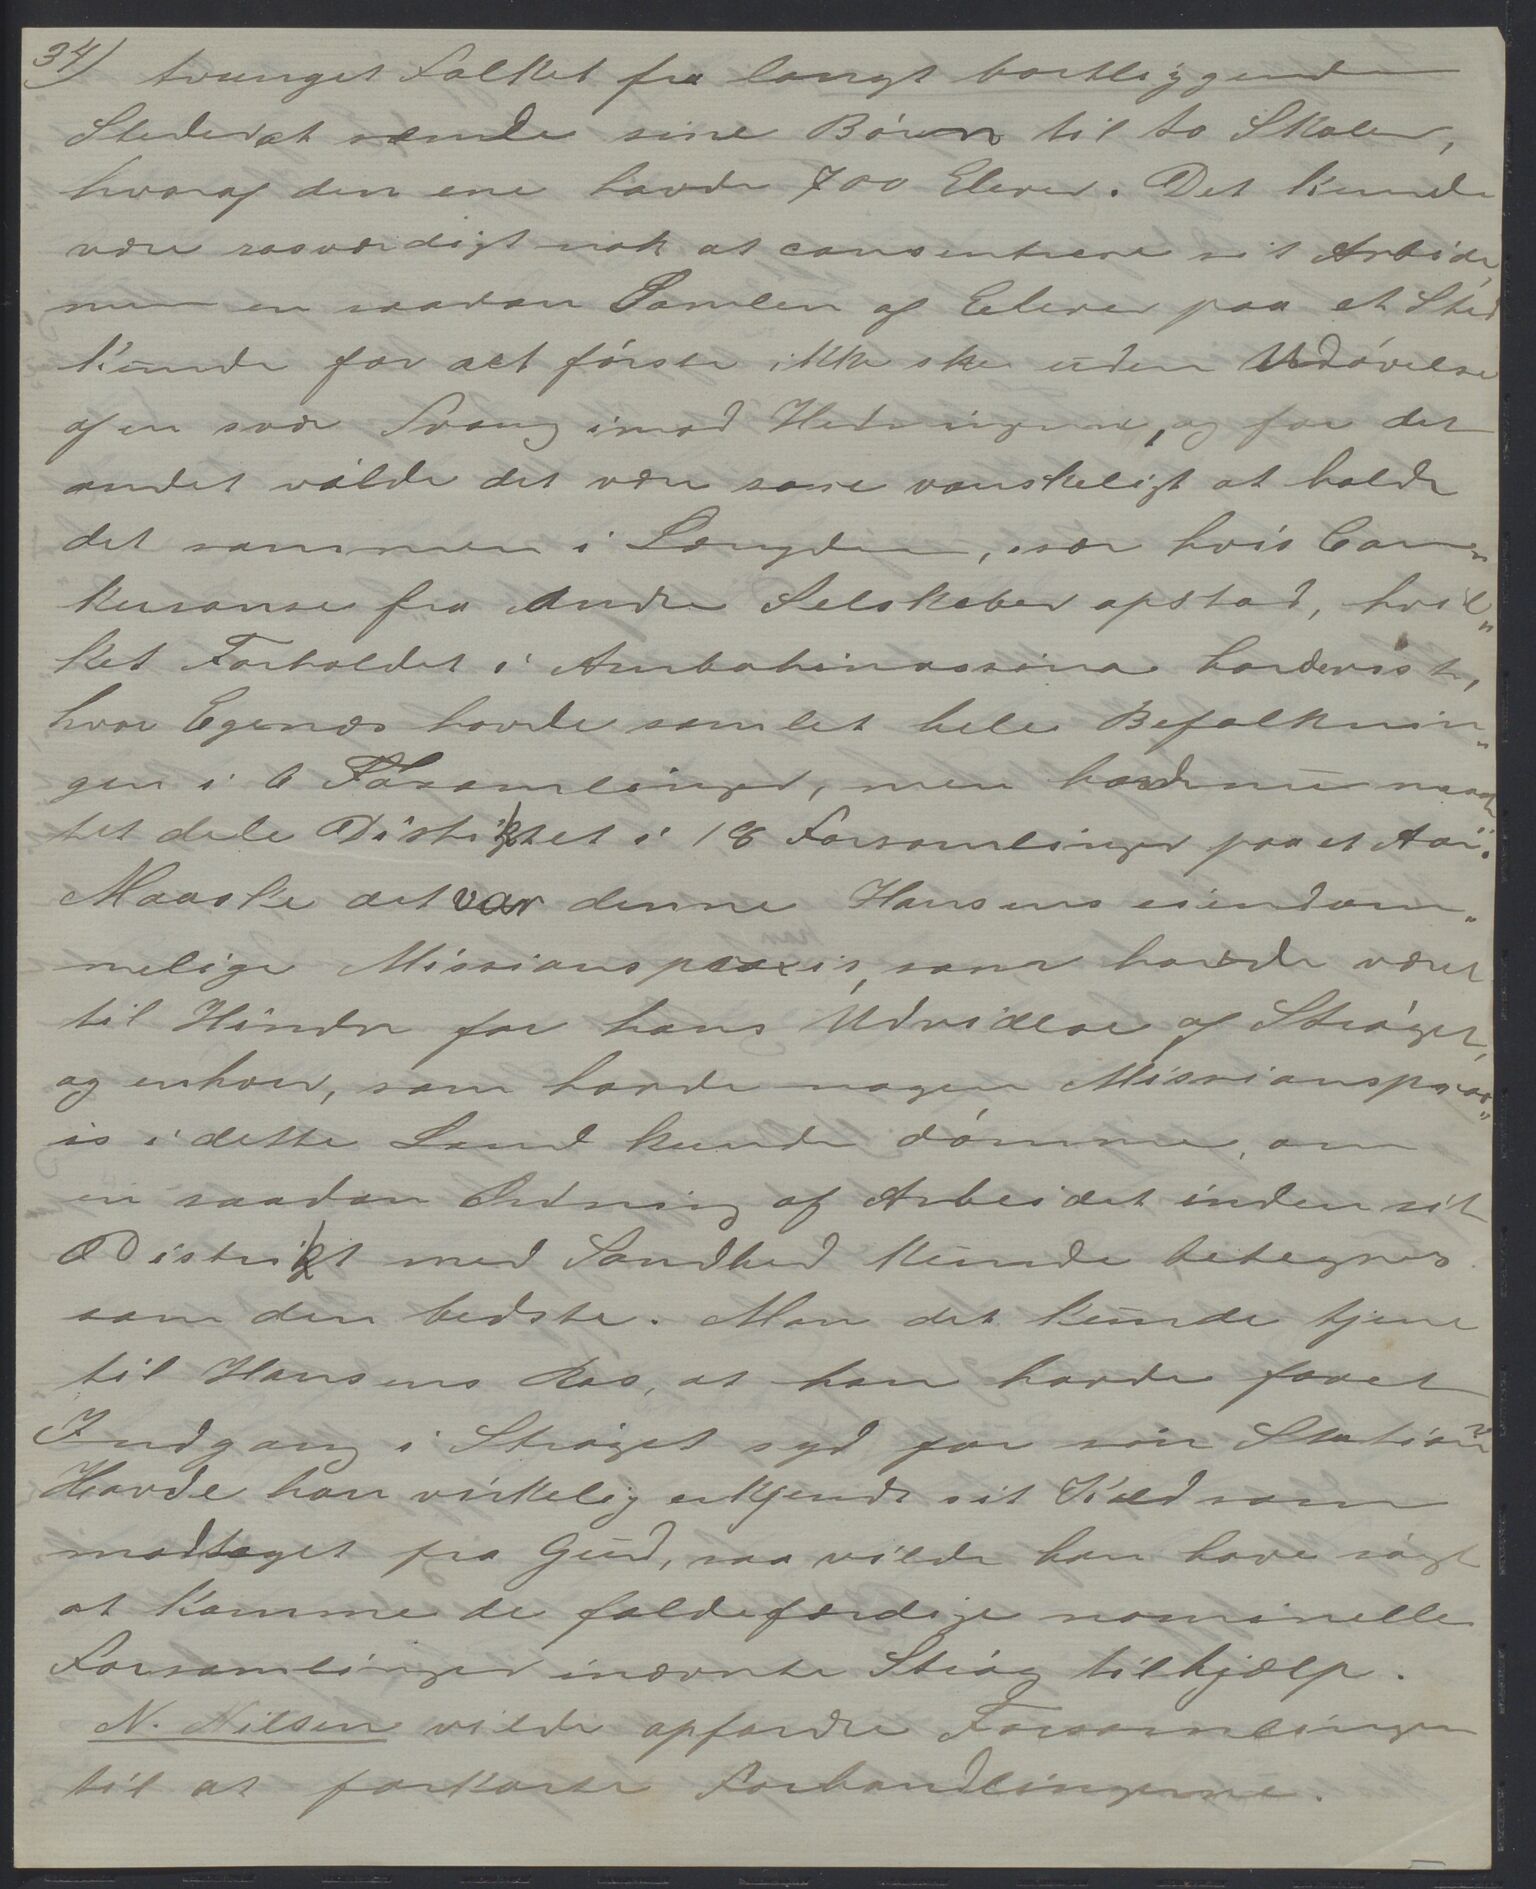 34) tvunget Folket fra langt bortliggende
Steder at sende sine Börn til to Skoler,
hvoraf den ene havde 700 Elever. Det kunde
være rosværdigt nok at consentrere sit Arbeide,
men en saadan Samlen af Elever paa et Sted
kunde for det förste ikke ske uden Udövelse
af en svær Tvang imod Hedningene, og for det
andet vilde det være saare vanskeligt at holde
det sammen i Længden, især hvis Con„
kuranse fra andre Selskaber opstod, hvil„
ket Forholdet i Ambohimasina havde vist,
hvor Egenæs havde samlet hele Befolknin„
gen i 6 Forsamlinger, men havde nu maat
tet dele Distriktet i 18 Forsamlinger paa et Aar.
Maaske det var denne Hansens eiendom„
melige Missionspraxis, som havde været
til Hinder for hans Udvidelse af Ströget,
og enhver, som havde nogen Missionsprax„
is i dette Land kunde dömme, om
en saadan Ordning af Arbeidet inden sit
Distrikt med Sandhed kunde betegnes
som den bedste. Mon det kunde tjene
til Hansens Ros, at han havde faaet
Indgang i Ströget syd for sin Station?
Havde han virkelig erkjendt sit Kald som
modtaget fra Gud, saa vilde han have sögt
at komme de faldefærdige nominelle
Forsamlinger i nævnte Strög tilhjælp.
N. Nilsen vilde opfordre Forsamlingen
til at forkorte Forhandlingerne.